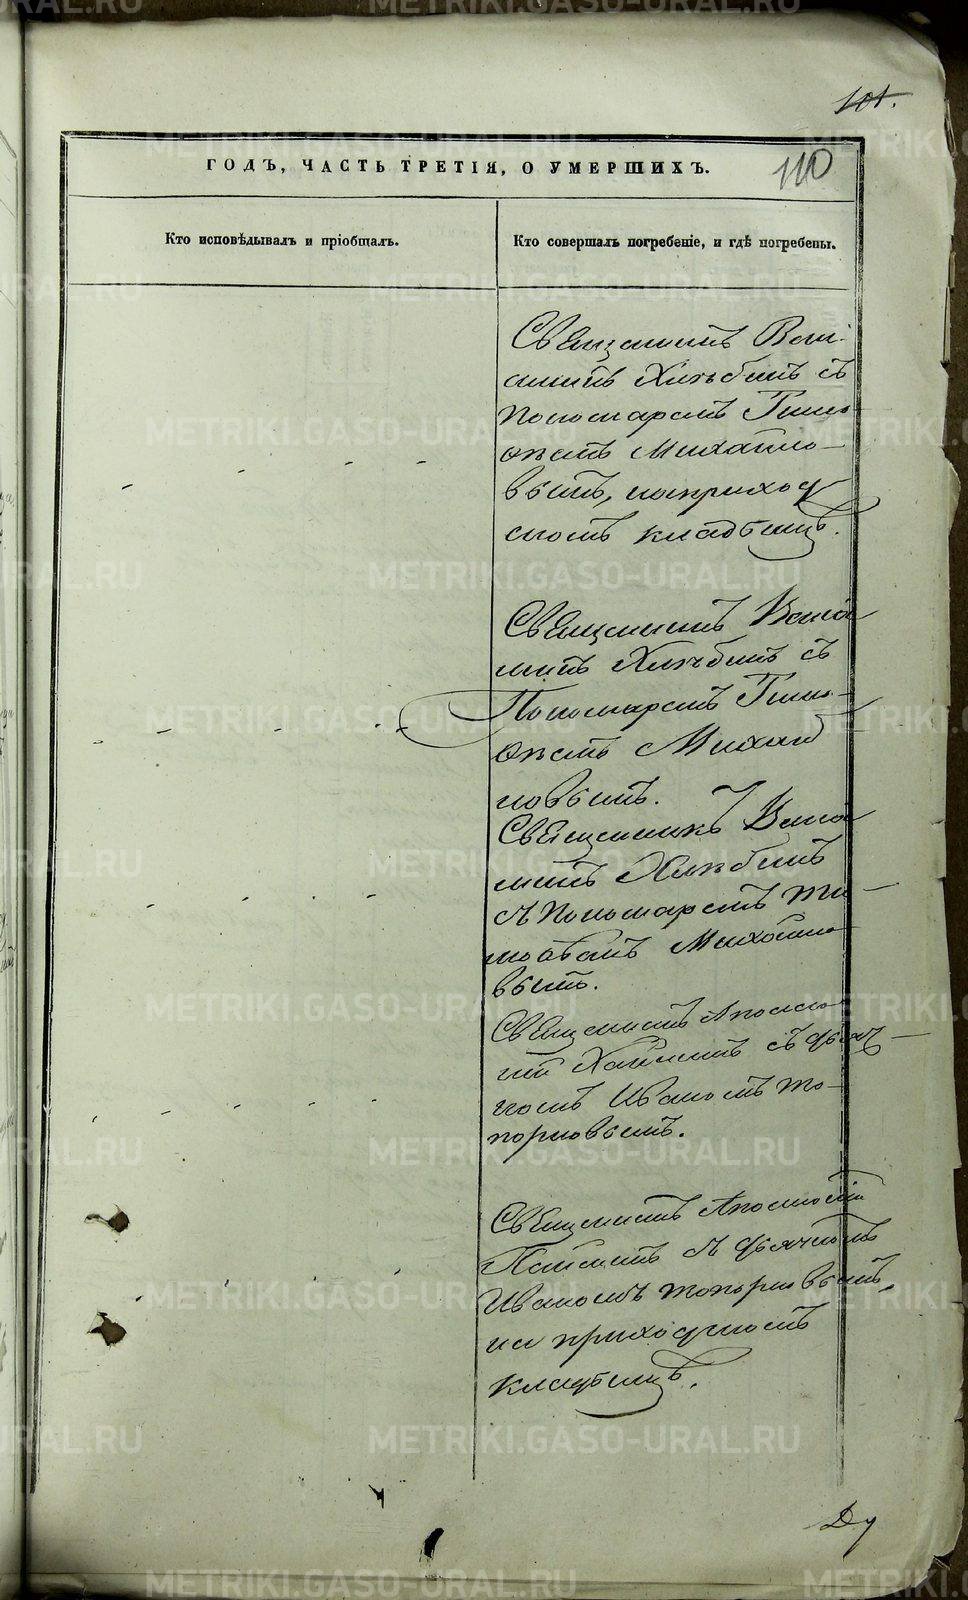 101.
110
ГОДЪ, ЧАСТЬ ТРЕТІЯ, О УМЕРШИХЪ.
Кто исповѣдывалъ и пріобщалъ.
Кто совершалъ погребеніе, и гдѣ погребены.
Священникъ Вені-
аминъ Хлѣбинъ съ
Пономаремъ Тимо-
ѳеемъ Михайло-
вымъ, на приход
скомъ кладбищѣ.
Священникъ Веніа
минъ Хлѣбинъ съ
Пономаремъ Тимо-
ѳеемъ Михай
ловымъ.
Священникъ Веніа
минъ Хлѣбинъ
съ Пономаремъ Ти-
моѳеемъ Михайло
вымъ.
Священникъ Аполло
ній съ дьяч-
комъ Иваномъ То-
порковымъ.
Священникъ Аполлоній
съ дьячкомъ
Иваномъ Топорковымъ,
на приходскомъ
кладбищѣ.
Ду
METRIKI.GASO-URAL.RU